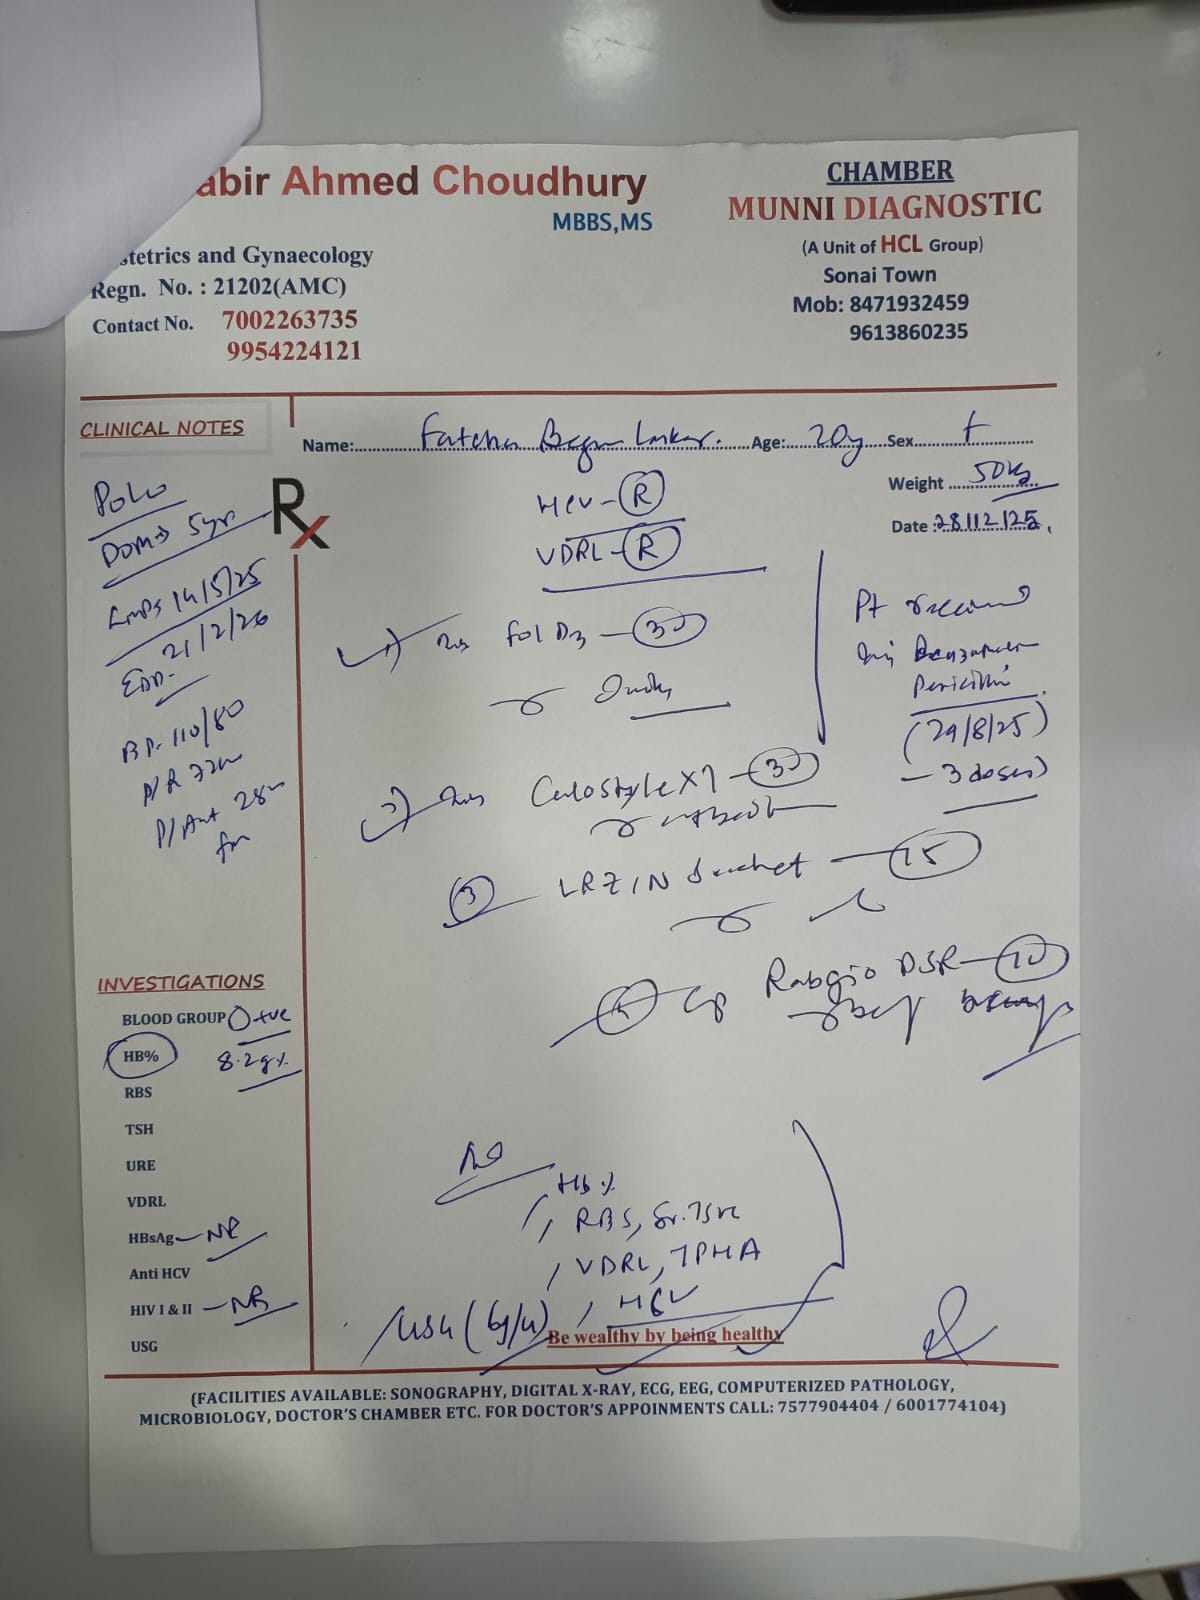 abir Ahmed Choudhury
MBBS,MS
tetrics and Gynaecology
Regn. No. : 21202(AMC)
Contact No. 7002263735
9954224121
CHAMBER
MUNNI DIAGNOSTIC
(A Unit of HCL Group)
Sonai Town
Mob: 8471932459
9613860235
CLINICAL NOTES
Name: Begum Age: 20y Sex F
Weight 50kg
Date : 28/12/25
Rx
5yr
LMP 14/5/25
EDD- 21/2/26
BP- 110/80
P/A
HCV - R
VDRL - R
1) Fol D3 - 30
2) X7 - 30
3 LRZIN Sachet - 15
4 Cap DSR - 10
Pt received
Inj Benzathine
Penicillin
(29/8/25)
- 3 doses)
INVESTIGATIONS
BLOOD GROUP O +ve
HB% 8.2g%
RBS
TSH
URE
VDRL
HBsAg - NR
Anti HCV
HIV I & II - NR
USG
Hb%
RBS, Sr. TSH
VDRL, TPHA
HCV
USG
Be wealthy by being healthy
(FACILITIES AVAILABLE: SONOGRAPHY, DIGITAL X-RAY, ECG, EEG, COMPUTERIZED PATHOLOGY,
MICROBIOLOGY, DOCTOR'S CHAMBER ETC. FOR DOCTOR'S APPOINMENTS CALL: 7577904404 / 6001774104)